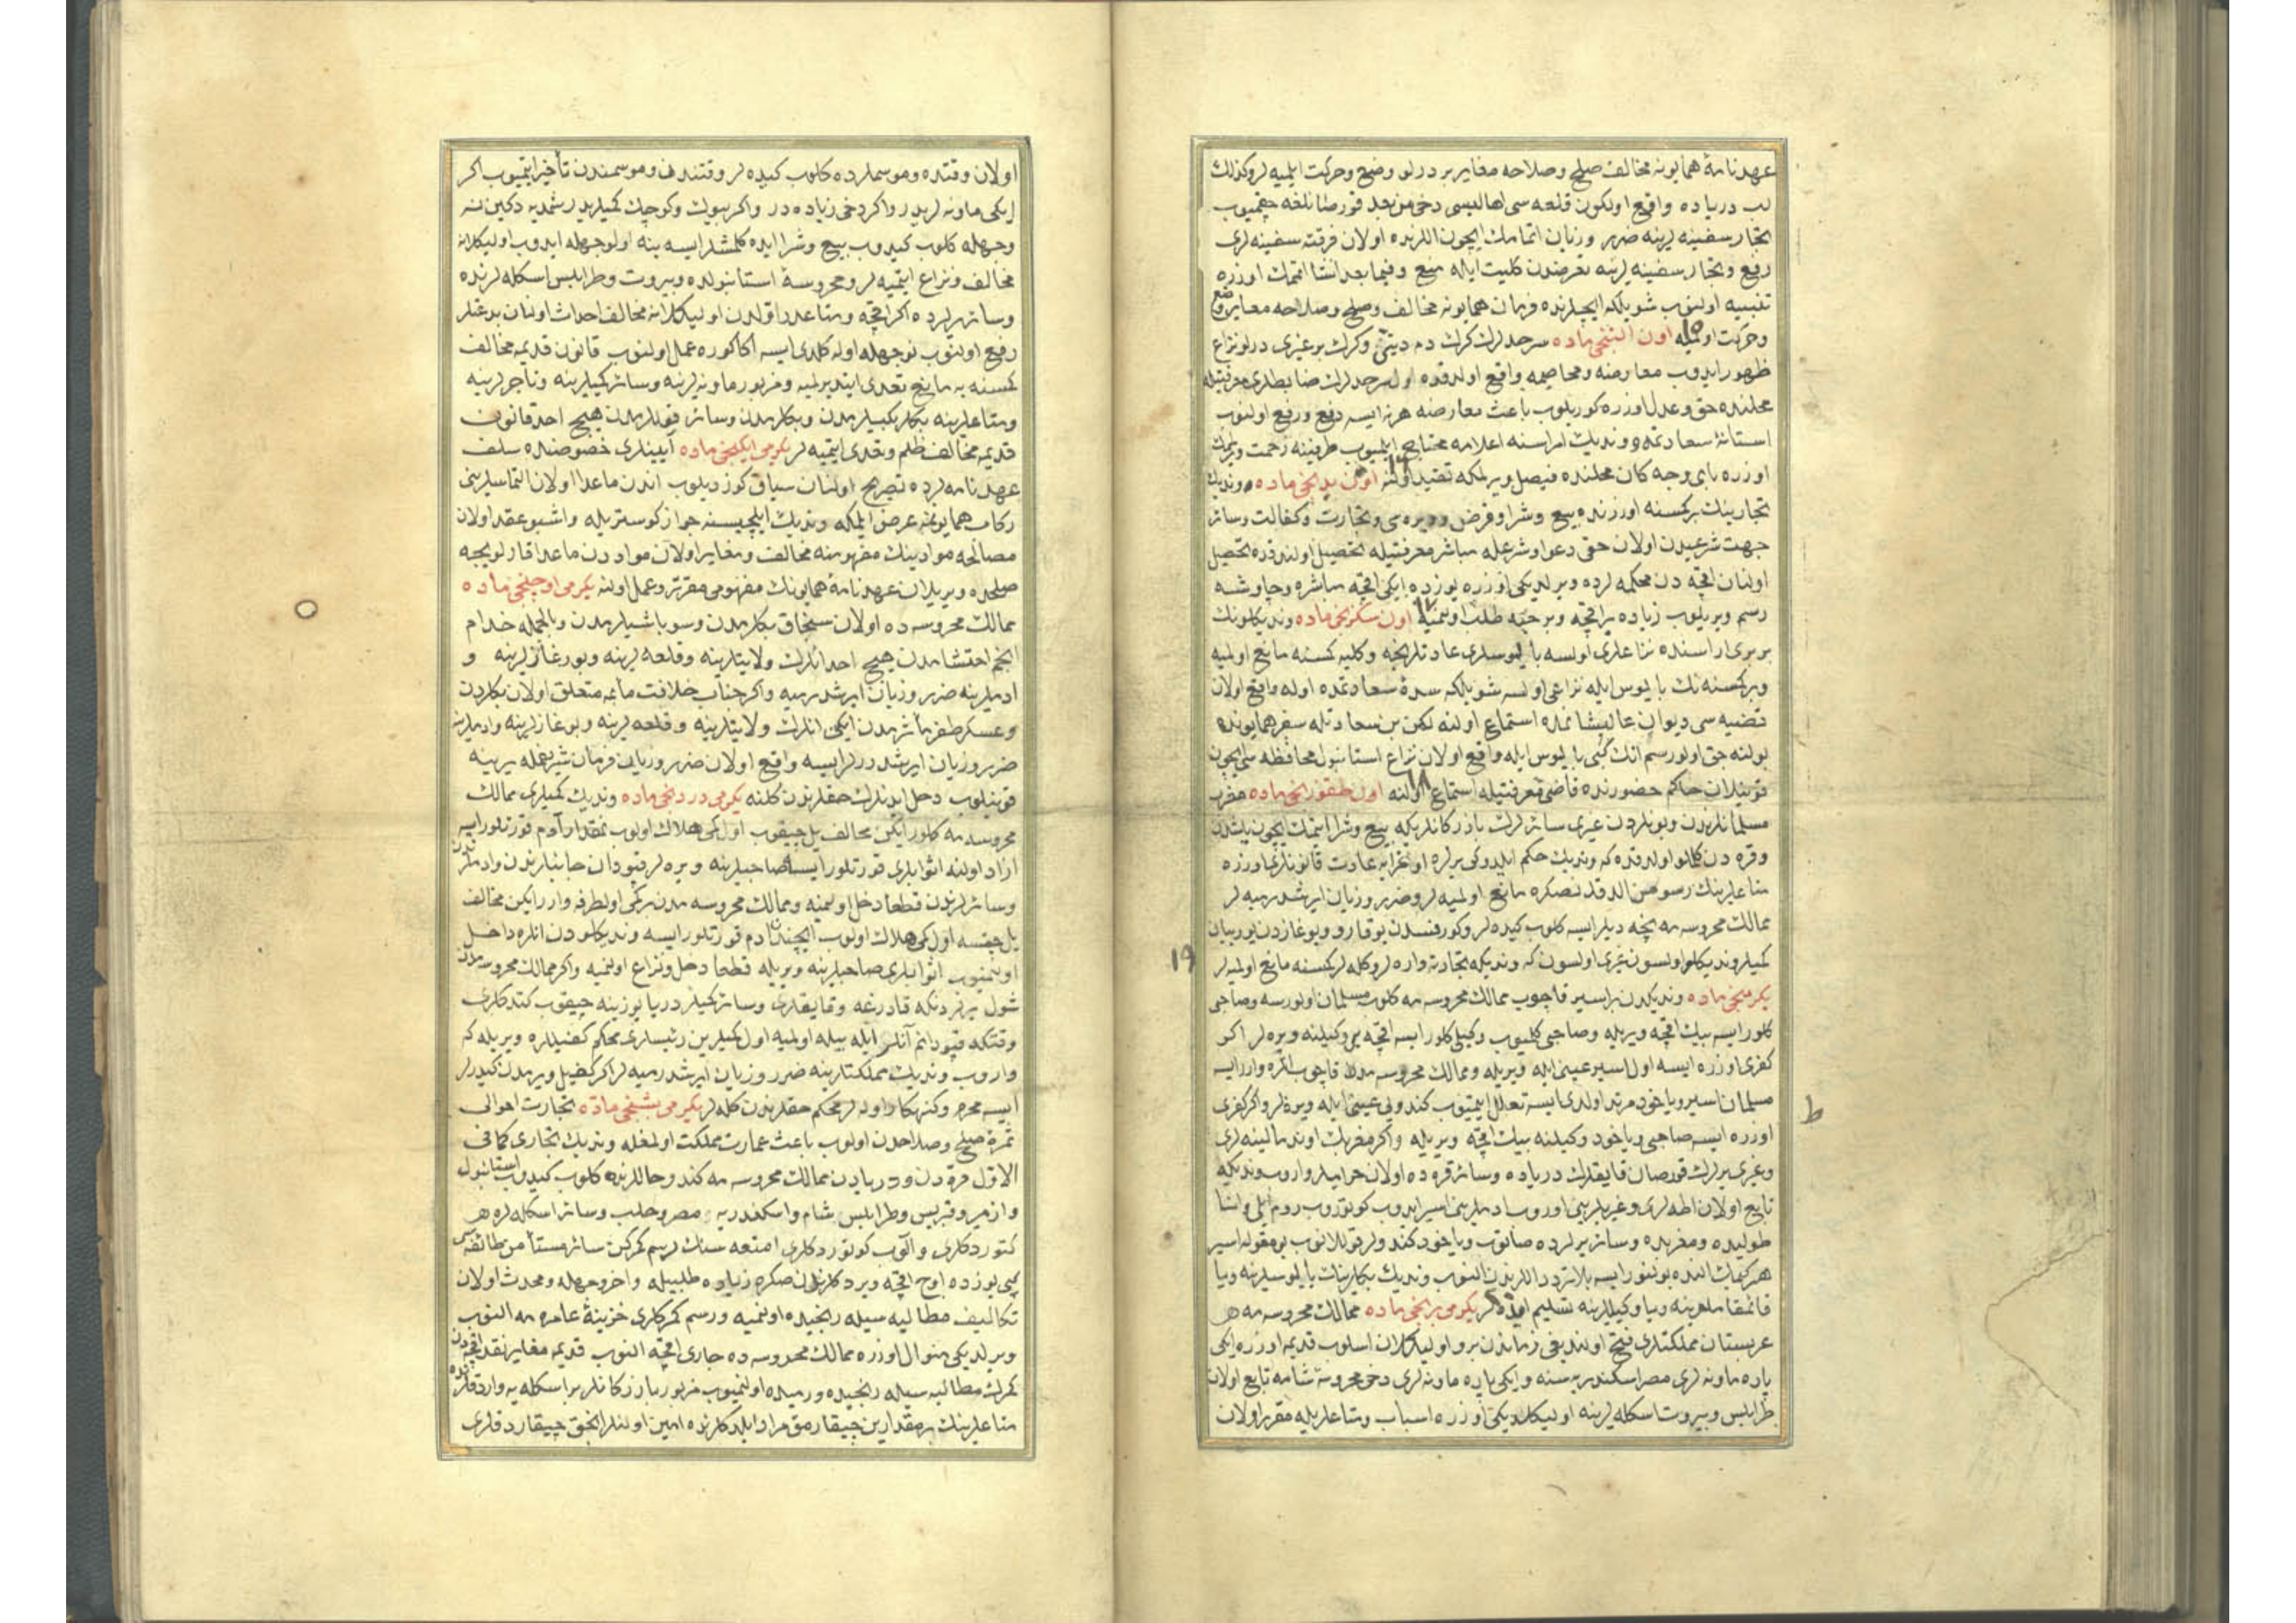 عهدنامهٔ همایونه مخالف صلح و صلاحه مغایر بر درلو وضع و حرکت ایلمیه لر و کذلك
لب دریاده واقع اولکون قلعه سی اهالیسی دخی من بعد قورصانلغه چقمیوب
تجار سفینه لرینه ضرر و زیان اتمامك ایچون اللرنده اولان فرقته سفینه لری
رفع و تجار سفینه لرینه تعرضدن کلیت ایله منع و فیما بعد انشا اتمامك اوزره
تنبیه اولنوب شویلکه ایچلرنده فرمان همایونه مخالف و صلح و صلاحه مغایر وضع
و حرکت اولنمیه ١٥ اون التنجی ماده سرحدلرك کرك دم دیتی و کرك بر غیری درلو نزاع
ظهور ایدوب معارضه و مخاصمه واقع اولدقده اول سرحدلرك ضابطلری معرفتیله
محلنده حق و عدل اوزره کوریلوب باعث معارضه هر نه ایسه دفع و رفع اولنوب
استانهٔ سعادتمه و وندیك امراسنه اعلامه محتاج ایلمیوب طرفینه زحمت ویرلمك
اوزره بای وجه کان محلنده فیصل ویرلمکه تقید اولنه اون یدنجی ماده وندیك
تجارینك بر کمسنه اوزرنده بیع و شرا و قرض و ویره سی و تجارت و کفالت و سائر
جهت شرعیدن اولان حقی دعوا و شرعله مباشر معرفتیله تحصیل اولندقده تحصیل
اولنان اقچه دن محکمه لرده ویرلدیکی اوزره یوزده ایکی اقچه مباشره و چاوشه
رسم ویریلوب زیاده بر اقچه و بر حبه طلب اولنمیه ١٧ اون سکزنجی ماده وندیکلونك
بربری اراسنده نزاعلری اولسه بایلوسلری عادتلرنجه و کلیه کمسنه مانع اولمیه
و بر کمسنه نك بایلوس ایله نزاعی اولسه شویلکه سدهٔ سعادتمده اوله واقع اولان
قضیه سی دیوان عالیشانمده استماع اولنه لکن بن سعادتله سفر همایونده
بولنه حق اولورسم انك کبی بایلوس ایله واقع اولان نزاع استانبول محافظه سی ایچون
قونیلان حاکم حضورنده قاضی معرفتیله استماع اولنه ١٨ اون طقوزنجی ماده مغرب
مسلمانلرندن و بونلردن غیری سائرلرك بازرکانلریکه بیع و شرا ایتمك ایچون یاشدن
و قره دن کلالو اولدقده کم وندیك حکم ایلدوکی یرلره اوغرایه عادت قانونلری اوزره
متاعلرینك رسومن الدقدنصکره مانع اولمیه لر و ضرر و زیان ایرشدرمیه لر
ممالك محروسه مه نجه دیلر ایسه کلوب کیده لر و کورفسدن یوقارو و بوغازدن یوریان
کمیلر وندیکلو اولسون غیری اولسون که وندیکه تجارته واره لر و کله لر کمسنه مانع اولمیه لر
١٩
یکرمنجی ماده وندیکدن بر اسیر قاچوب ممالك محروسه مه کلوب مسلمان اولورسه و صاحبی
کلور ایسه بیك اقچه ویریله و صاحبی کلمیوب وکیلی کلور ایسه اقچه یی وکیلنه ویره لر اکر
کفری اوزره ایسه اول اسیر عینی ایله ویریله و ممالك محروسه مدن قاچوب انلره وارر ایسه
مسلمان اسیر و یاخود مرتد اولدی ایسه تعلل ایتمیوب کندویی عینی ایله ویره لر و اکر کفری
ط
اوزره ایسه صاحبی و یاخود وکیلنه بیك اقچه ویریله و اکر مغربك اوند مالینه لری
و غیری یرلرك قورصان قایقلرك دریاده و سائر قره ده اولان حرامیلر واروب وندیکه
تابع اولان اطه لری و غیر یرلرینی اوروب ادملرینی اسیر ایدوب کوتوروب روم ایلی و انا
طولیده و مغربده و سائر یرلرده صاتوب و یاخود کندولر قوللانوب بو مقوله اسیر
هر کیمك النده بولنور ایسه بلا تردد اللرندن النوب وندیك بکلرینك بایلوسلرینه و یا
قائمقاملرینه و یا وکیللرینه تسلیم ایده لر یکرمی برنجی ماده ممالك محروسه مه هر
عربستان مملکتلری فتح اولندیغی زماندن برو اولیکلان اسلوب قدیم اوزره ایکی
پاره ماونه لری مصر اسکندریه سنه و ایکی پاره ماونه لری دخی محروسهٔ شامه تابع اولان
طرابلس و بیروت اسکله لرینه اولیکلدیکی اوزره اسباب و متاعلریله مقرر اولان
اولان وقتده و موسملرده کلوب کیده لر وقتندن و موسمندن تأخیر ایتمیوب اکر
ایکی ماونه لریدر و اکر دخی زیاده در و اکر بیوك و کوچك کمیلریدر شمدیه دکین نه
وجهله کلوب کیدوب بیع و شرا ایده کلمشلر ایسه ینه اول وجهله ایدوب اولیکلانه
مخالف و نزاع ایتمیه لر و محروسهٔ استانبولده و بیروت و طرابلس اسکله لرنده
و سائر یرلرده اکر اقچه و متاعدر اولدن اولیکلانه مخالف احداث اولنان بدعتلر
رفع اولنوب نوجهله اوله کلدی ایسه اکا کوره عمل اولنوب قانون قدیمه مخالف
کمسنه یه مانع تعدی ایتدیرلمیه و مزبور ماونه لرینه و سائر کمیلرینه و تاجرلرینه
و متاعلرینه بکلربکیلرمدن و بکلرمدن و سائر قوللرمدن هیچ احد قانون
قدیمه مخالف ظلم و تعدی ایتمیه لر یکرمی ایکنجی ماده آیینلری خصوصنده سلف
عهدنامه لرده تصریح اولنان سیاق کوزدیلوب اندن ماعدا اولان التماسلرینی
رکاب همایونمه عرض ایلمکه وندیك ایلچیسنه جواز کوستریله و اشبو عقد اولان
مصالحه موادینك مفهومنه مخالف و مغایر اولان مواددن ماعدا قارلویجه
صلحده ویریلان عهدنامهٔ همایونك مفهومی مقرر و عمل اولنه یکرمی اوچنجی ماده
ممالك محروسه ده اولان سنجاق بکلرمدن و سوباشیلرمدن و بالجمله خدام
انجم احتشامدن هیچ احد انلرك ولایتلرینه و قلعه لرینه و بوغازلرینه و
ادملرینه ضرر و زیان ایرشدرمیه و اکر جناب خلافت مابمه متعلق اولان بکلردن
و عسکر ظفر مأثرمدن ایکی انلرك ولایتلرینه و قلعه لرینه و بوغازلرینه و ادملرینه
ضرر و زیان ایرشدررلر ایسه واقع اولان ضرر و زیان فرمان شریفمله یرینه
قونیلوب دخل ایدنلرك حقلرندن کلنه یکرمی دردنجی ماده وندیك کمیلری ممالك
محروسه مه کلور ایکن مخالف یل چیقوب اول کمی هلاك اولوب نمقدار آدم قورتلور ایسه
ازاد اولنه اثوابلری قورتلور ایسه صاحبلرینه ویره لر قپودان جانبلرندن و ادملرندن
و سائرلرندن قطعا دخل اولنمیه و ممالك محروسه مدن بر کمی اول طرفه وارر ایکن مخالف
یل چقسه اول کمی هلاك اولوب ایچندن آدم قورتلور ایسه وندیکلودن انلره داخل
اولنمیوب اثوابلری صاحبلرینه ویریله قطعا دخل و نزاع اولنمیه و اکر ممالك محروسه مدن
شول یرلردنکه قادرغه و قایقلری و سائر کمیلر دریا یوزینه چیقوب کتدکلری
وقتکه قپودانم آنلر ایله بیله اولمیه اول کمیلرین رئیسلری محکم کفیللره ویریله که
واروب وندیك مملکتلرینه ضرر و زیان ایرشدرمیه لر اکر کفیل ویرمدن کیدرلر
ایسه مجرم و کنهکار اوله لر محکم حقلرندن کله لر یکرمی بشنجی ماده تجارت احوالی
ثمرهٔ صلح و صلاحدن اولوب باعث عمارت مملکت اولمغله وندیك تجاری کما فی
الاول قره دن و دریادن ممالك محروسه مه کندو حاللرنده کلوب کیدوب استانبول
و ازمیر و قبریس و طرابلس شام و اسکندریه و مصر و حلب و سائر اسکله لره هر
کتوردکلری و آلوب کوتوردکلری امتعه سنك رسم کمرکن سائر مستأمن طائفه سی
کبی یوزده اوچ اقچه ویردکلرندن صکره زیاده طلبیله و اخر وجهله و محدث اولان
تکالیف مطالبه سیله رنجیده اولنمیه و رسم کمرکلری خزینهٔ عامره مه النوب
ویرلدیکی منوال اوزره ممالك محروسه ده جاری اقچه النوب قدیم مغایر نقد اقچه دن
کمرك مطالبه سیله رنجیده و رمیده اولنمیوب مزبور بازرکانلر بر اسکله یه واردقلرنده
متاعلرینك بر مقدارین چیقارمق مراد ایلدکلرنده امین اولنلر انجق چیقاردقلری